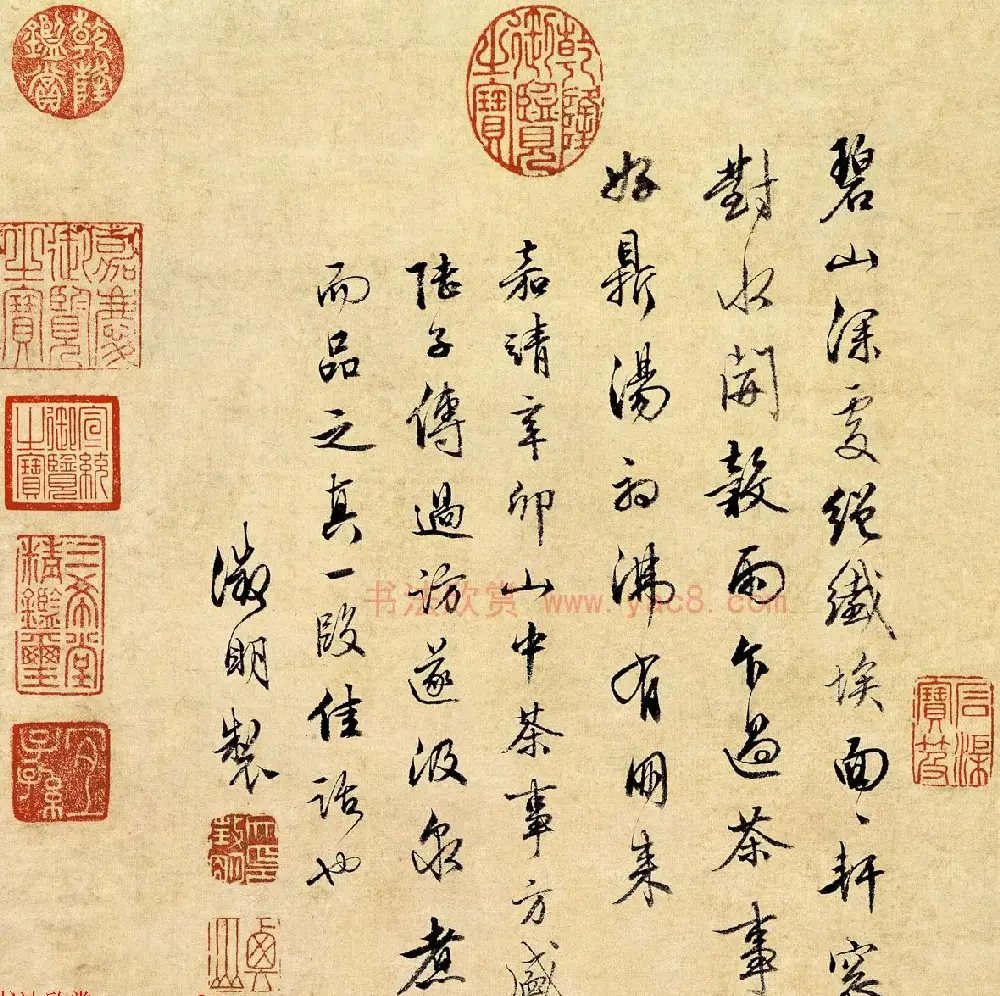 石渠寶笈
碧山深處絕纖埃面〻軒窓
對水開穀雨乍過茶事
好鼎湯初沸有朋來
嘉靖辛卯山中茶事方盛
陸子傳過訪遂汲泉煮
而品之真一段佳話也
徵明製
乾隆御覽之寶
乾隆鑑賞
嘉慶御覽之寶
宣統御覽之寶
三希堂精鑑璽
宜子孫
书法欣赏 www.yac8.com